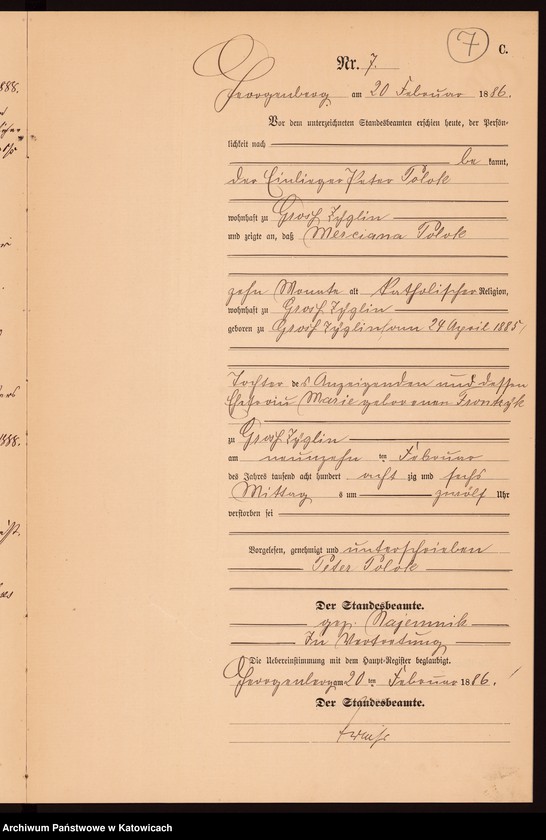 7 C.
Nr. 7.
Georgenberg am 20 Februar 1886.
Vor dem unterzeichneten Standesbeamten erschien heute, der Persön-
lichkeit nach
be kannt,
der Einlieger Peter Polok
wohnhaft zu Groß Zyglin
und zeigte an, daß Merciana Polok
zehn Monate alt Katholischer Religion,
wohnhaft zu Groß Zyglin
geboren zu Groß Zyglin am 24 April 1885
Tochter des Anzeigenden und dessen
Ehefrau Marie geborenen
zu Groß Zyglin
am neunzehn ten Februar
des Jahres tausend acht hundert acht zig und sechs
Mittag s um zwölf Uhr
verstorben sei
Vorgelesen, genehmigt und unterschrieben
Peter Polok
Der Standesbeamte.
gez. Kajemnik
In Vertretung
Die Uebereinstimmung mit dem Haupt-Register beglaubigt.
Georgenberg am 20 ten Februar 1886.
Der Standesbeamte.
1888.
1888.
Archiwum Państwowe w Katowicach